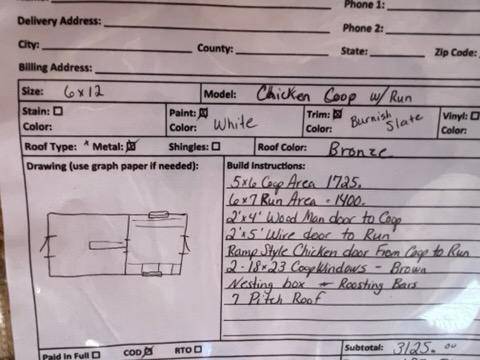 Phone 1:
Delivery Address:
Phone 2:
City: County: State: Zip Code:
Billing Address:
Size: 6x12 Model: Chicken Coop w/ Run
Stain: ☐ Paint: ☒ Trim: ☒ Vinyl: ☐
Color: Color: White Color: Burnish Slate Color:
Roof Type: * Metal: ☒ Shingles: ☐ Roof Color: Bronze
Drawing (use graph paper if needed): Build Instructions:
5x6 Coop Area 1725.
6x7 Run Area - 1400.
2'x4' Wood Man door to Coop
2'x5' Wire door to Run
Ramp Style Chicken door From Coop to Run
2 - 18x23 Coop Windows - Brown
Nesting box + Roosting Bars
7 Pitch Roof
Paid in Full ☐ COD ☒ RTO ☐ Subtotal: 3125.00